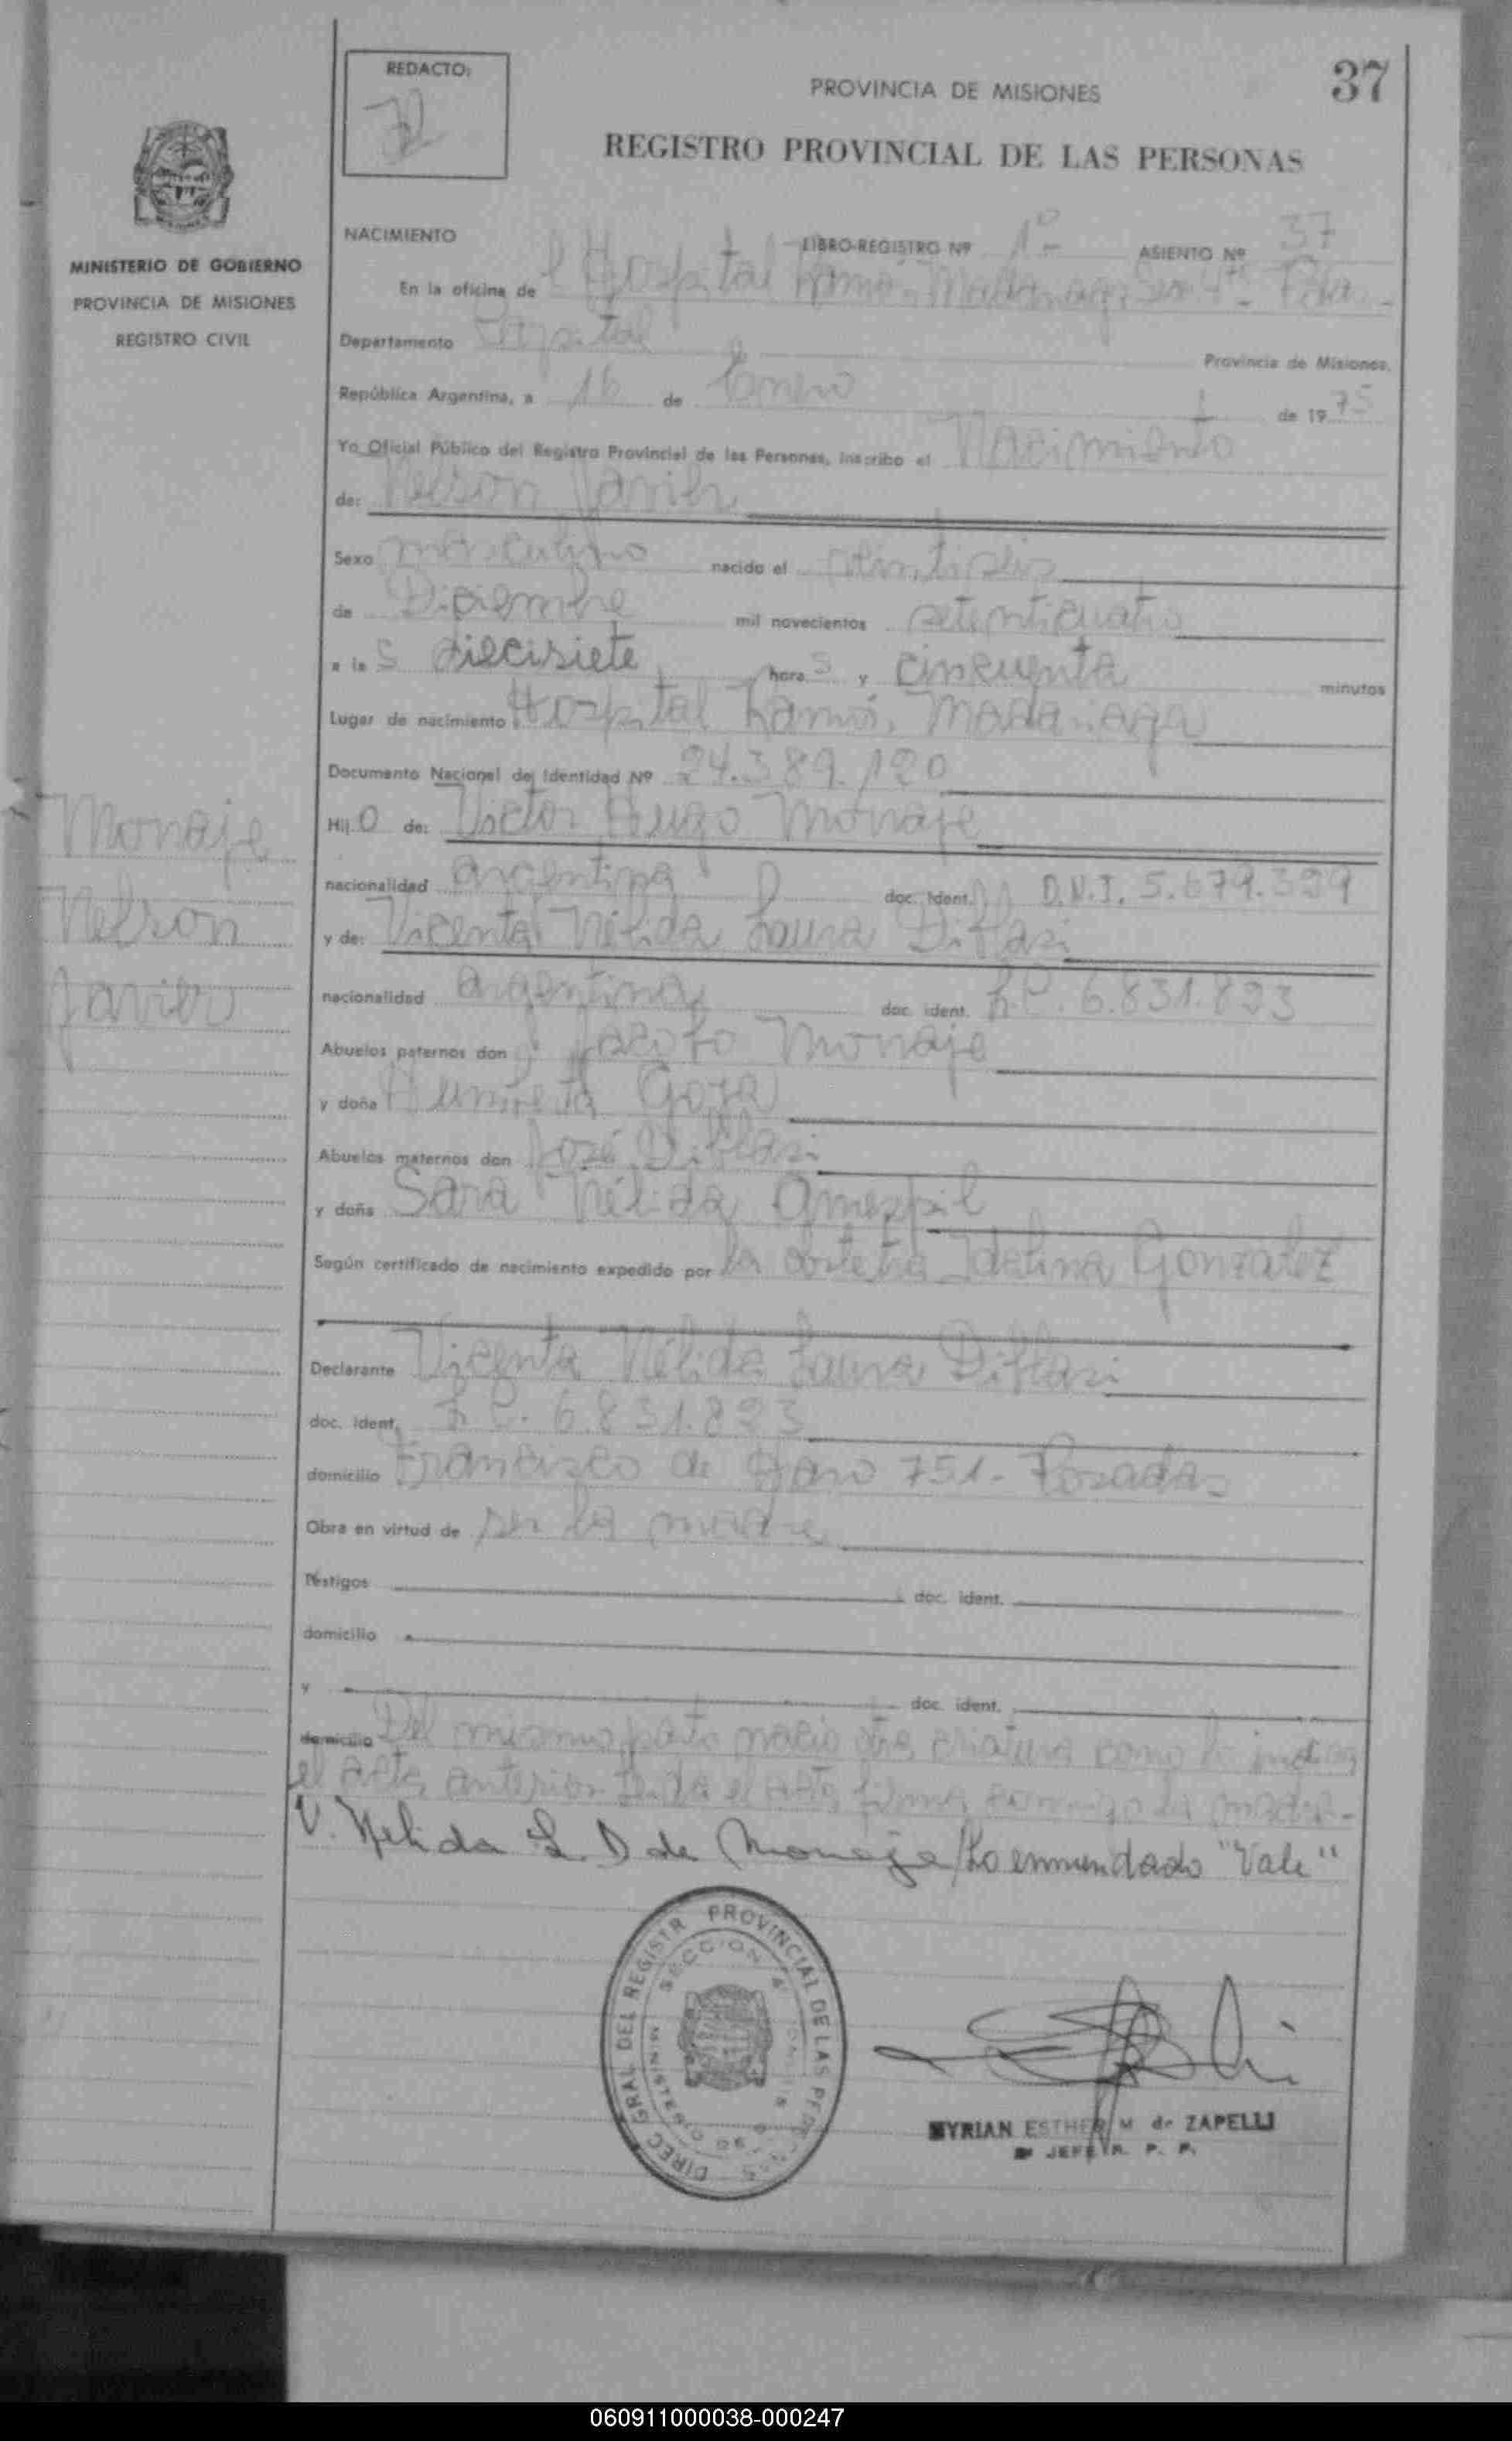 REDACTO:
PROVINCIA DE MISIONES
37
REGISTRO PROVINCIAL DE LAS PERSONAS
MINISTERIO DE GOBIERNO
PROVINCIA DE MISIONES
REGISTRO CIVIL
NACIMIENTO LIBRO-REGISTRO Nº 1º ASIENTO Nº 37
En la oficina de l Hospital Ramón Madariaga
Departamento Capital Provincia de Misiones,
República Argentina, a 16 de Enero de 1975
Yo Oficial Público del Registro Provincial de las Personas, inscribo el Nacimiento
de: Nelson Javier
Sexo masculino nacido el veintiseis
de Diciembre mil novecientos setenticuatro
a las diecisiete horas y cincuenta minutos
Lugar de nacimiento Hospital Ramón Madariaga
Documento Nacional de Identidad Nº 24.389.120
Hijo de: Victor Hugo Monaje
nacionalidad argentina doc. ident. D.N.I. 5.679.399
y de: Vicenta Nélida Laura Diblasi
nacionalidad argentina doc. ident. L.C. 6.831.893
Abuelos paternos don Jacoto Monaje
y doña
Abuelos maternos don José Diblasi
y doña Sara Nélida
Según certificado de nacimiento expedido por la Gonzalez
Declarante Vicenta Nélida Laura Diblasi
doc. ident. L.C. 6.831.893
domicilio Francisco de Haro 751- Posadas
Obra en virtud de ser la madre
Testigos doc. ident.
domicilio
y doc. ident.
domicilio Del mismo parto nació otra criatura como lo indica
el acta anterior leida el acta firma conmigo la madre-
V. Nelida L. D de Monaje/Lo enmendado "Vale"
Monaje
Nelson
Javier
DIREC GRAL DEL REGISTR PROVINCIAL DE LAS PERSONAS
SECCION 4
MINISTERIO DE GOBIERNO
MYRIAN ESTHER M de ZAPELLI
JEFE R. P. P.
060911000038-000247